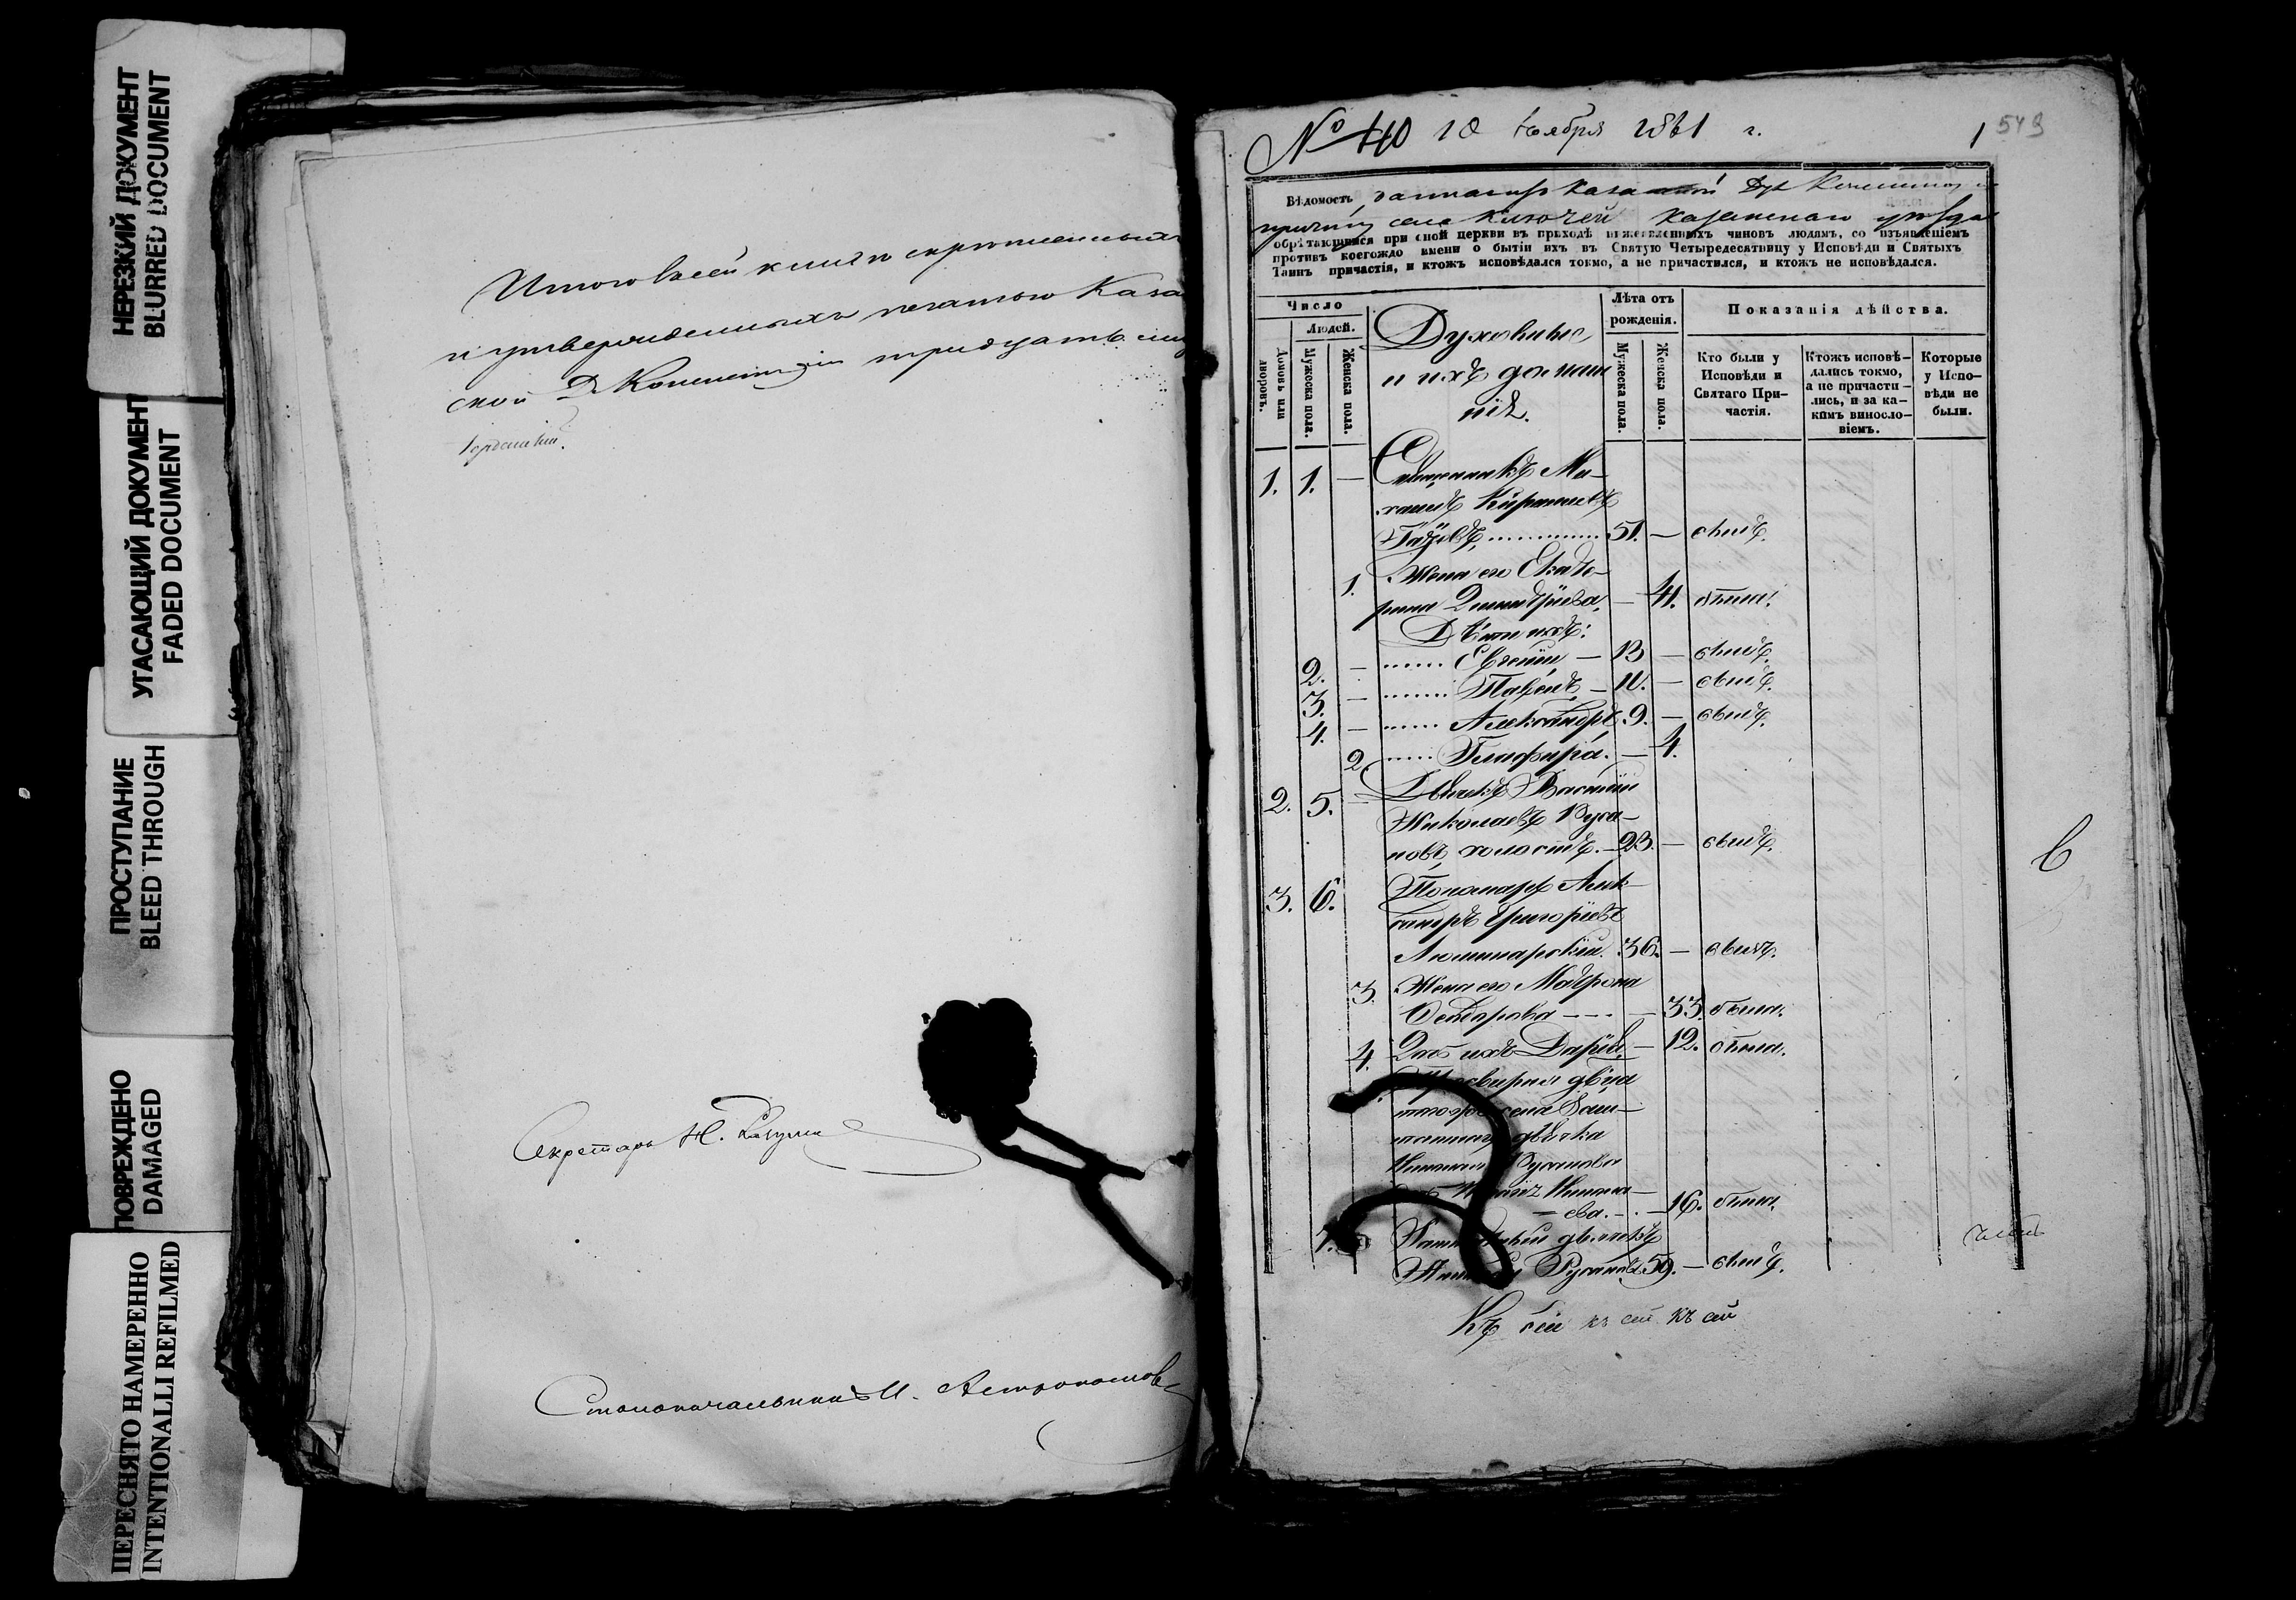 НЕРЕЗКИЙ ДОКУМЕНТ
BLURRED DOCUMENT
УГАСАЮЩИЙ ДОКУМЕНТ
FADED DOCUMENT
ПРОСТУПАНИЕ
BLEED THROUGH
ПОВРЕЖДЕНО
DAMAGED
ПЕРЕСНЯТО НАМЕРЕННО
INTENTIONALLI REFILMED
Итого въ сей книгѣ скрѣпленныхъ
и утвержденныхъ печатью Каза
ской Д Консисторіи тридцать
Секретарь Н.
Столоначальникъ И. Астрономов
№ 40 18 Ноября 1861 г.
1 549
Вѣдомость, данная изъ Казанской Дух Консисторіи
причту села Ключей Казанскаго уѣзда
обрѣтающимся при оной церкви въ приходѣ нижеявленныхъ чиновъ людямъ, со изъявленіемъ
противъ коегождо имени о бытіи ихъ въ Святую Четыредесятницу у Исповѣди и Святыхъ
Таинъ причастія, и ктожъ исповѣдался токмо, а не причастился, и ктожъ не исповѣдался.
Число
Людей.
Домовъ или дворовъ.
Мужеска пола.
Женска пола.
Духовные
и ихъ домаш
ніе.
Лѣта отъ рожденія.
Мужеска пола.
Женска пола.
Показанія дѣйства.
Кто были у Исповѣди и Святаго Причастія.
Ктожъ исповѣ-
дались токмо,
а не причасти-
лись, и за ка-
кимъ винословіемъ.
Которые у Исповѣди не были.
1. 1. — Священникъ Ми-
хаилъ Кирилловъ
51. — былъ.
1. Жена его Екате-
рина Димитріева, — 41. была.
Дѣти ихъ:
2. — Евгеній — 13 — былъ.
3. — Павелъ — 11. — былъ.
4. — Александръ 9. — былъ.
2. Глафира. — 4.
2. 5. — Дьячекъ Василій
Николаевъ Руса-
новъ, холостъ. — 23. — былъ.
3. 6. Пономарь Алек-
сандръ Григорьевъ
Люминарскій. 36. — былъ.
3. Жена его Матрона
Ѳедорова — 33. была.
4. Дочь ихъ Дарія — 12. была.
Просвирня дѣвица
дьячка
Русанова
ева. — 16. была.
7. дьячекъ
Русановъ 59. — былъ.
Къ сей къ сей къ сей